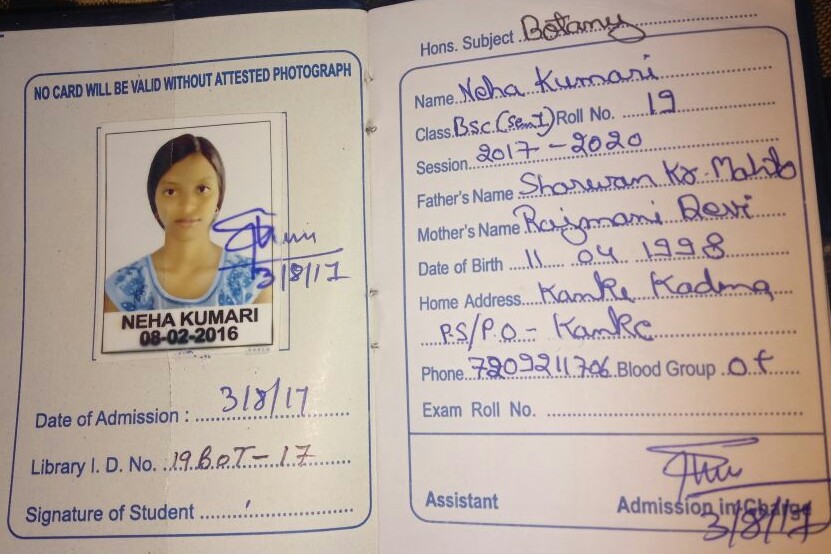 NO CARD WILL BE VALID WITHOUT ATTESTED PHOTOGRAPH
3/8/17
NEHA KUMARI
08-02-2016
Date of Admission : 3/8/17
Library I. D. No. 19BOT-17
Signature of Student
Hons. Subject Botany
Name Neha Kumari
Class Bsc (sem I) Roll No. 19
Session 2017 - 2020
Father's Name Sharwan Kr. Mahto
Mother's Name Rajmani Devi
Date of Birth 11 04 1998
Home Address Kanke Kadma
P.S/P.O - Kanke
Phone 7209211706 Blood Group O+
Exam Roll No.
Assistant Admission in Charge
3/8/17